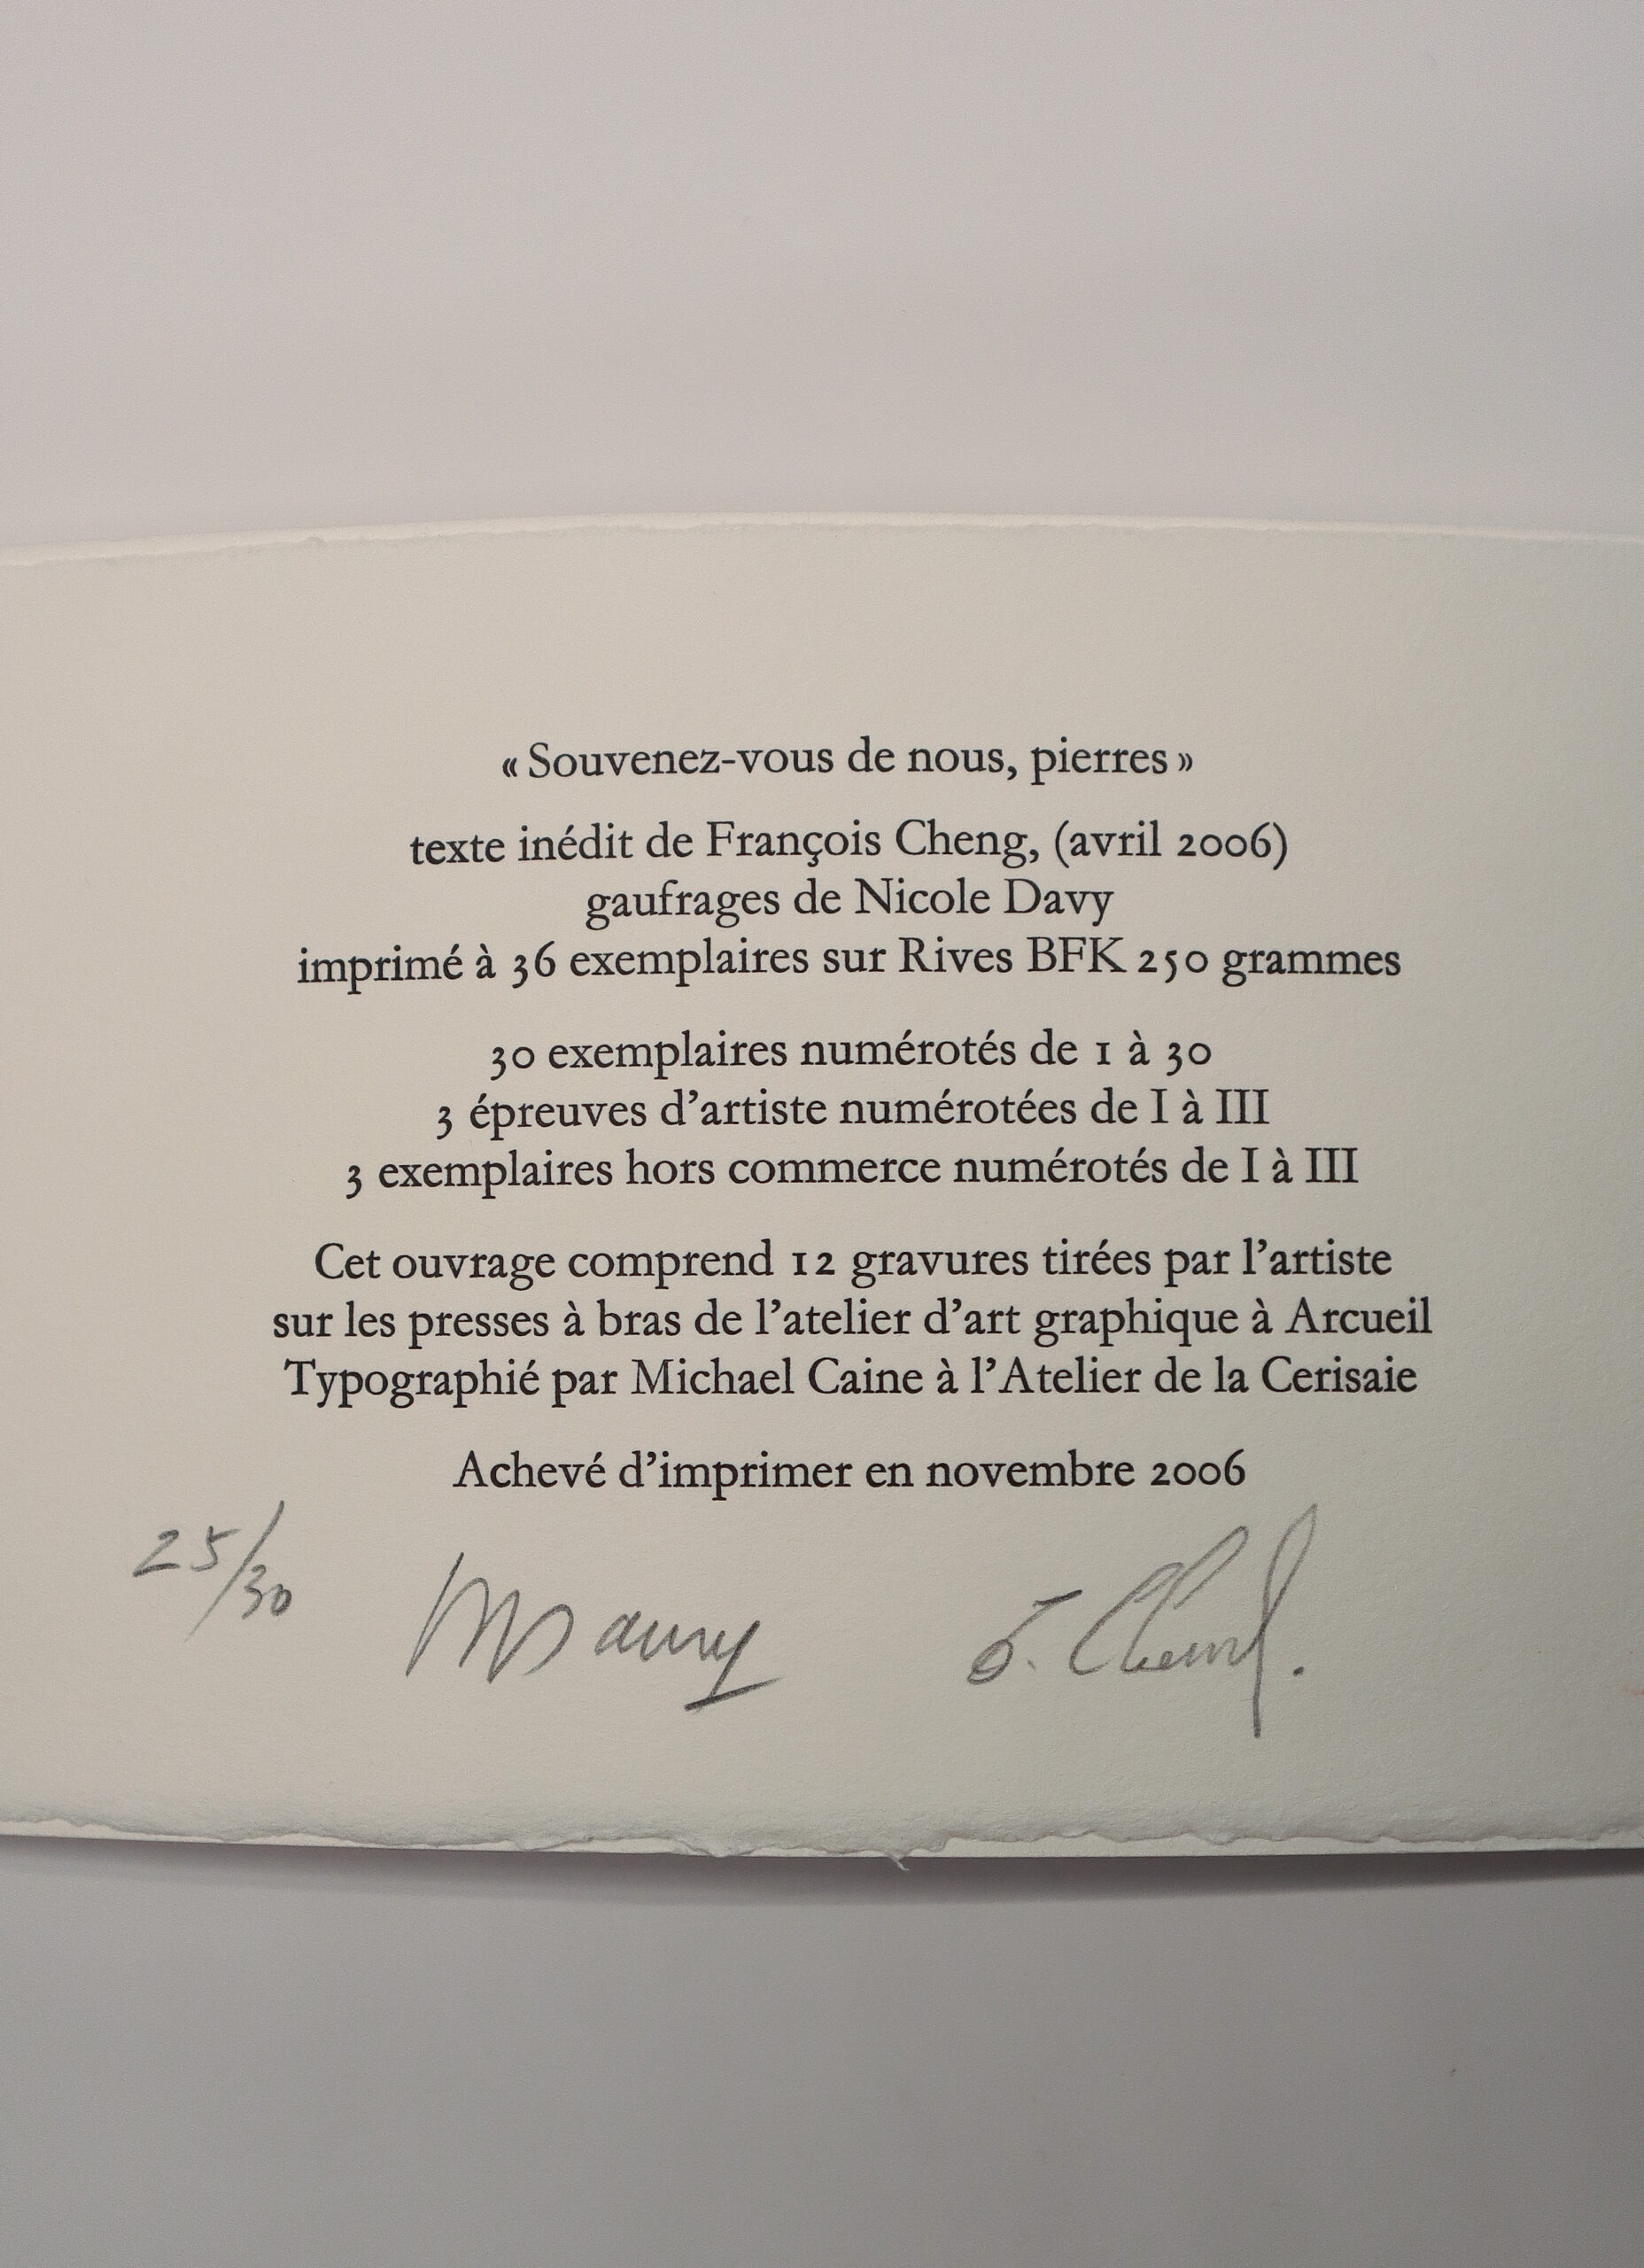 « Souvenez-vous de nous, pierres »
texte inédit de François Cheng, (avril 2006)
gaufrages de Nicole Davy
imprimé à 36 exemplaires sur Rives BFK 250 grammes
30 exemplaires numérotés de 1 à 30
3 épreuves d’artiste numérotées de I à III
3 exemplaires hors commerce numérotés de I à III
Cet ouvrage comprend 12 gravures tirées par l’artiste
sur les presses à bras de l’atelier d’art graphique à Arcueil
Typographié par Michael Caine à l’Atelier de la Cerisaie
Achevé d’imprimer en novembre 2006
25/30